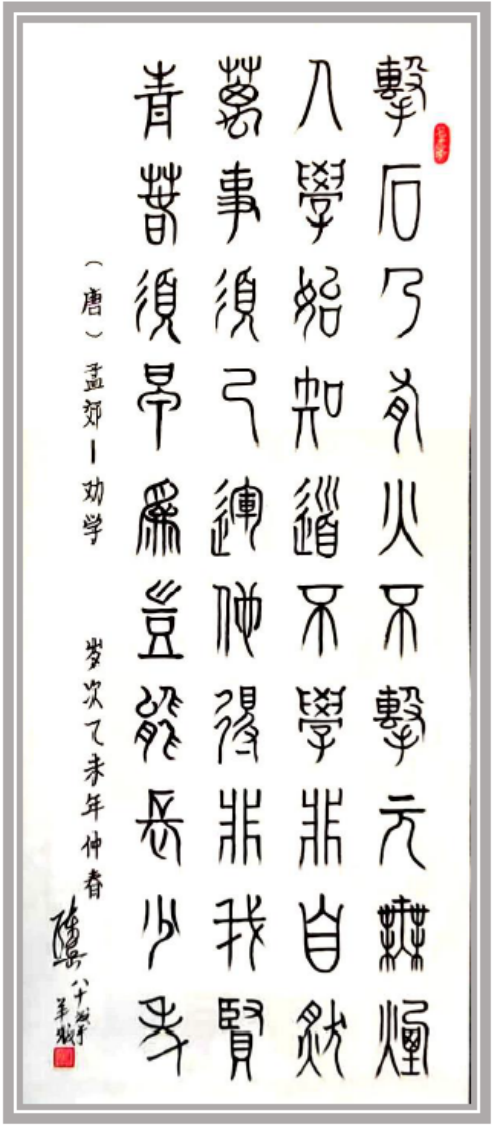 擊石乃有火不擊元無煙
人學始知道不學非自然
萬事須己運他得非我賢
青春須早為豈能長少年
（唐）孟郊—劝学 岁次乙未年仲春
八十岁于羊城